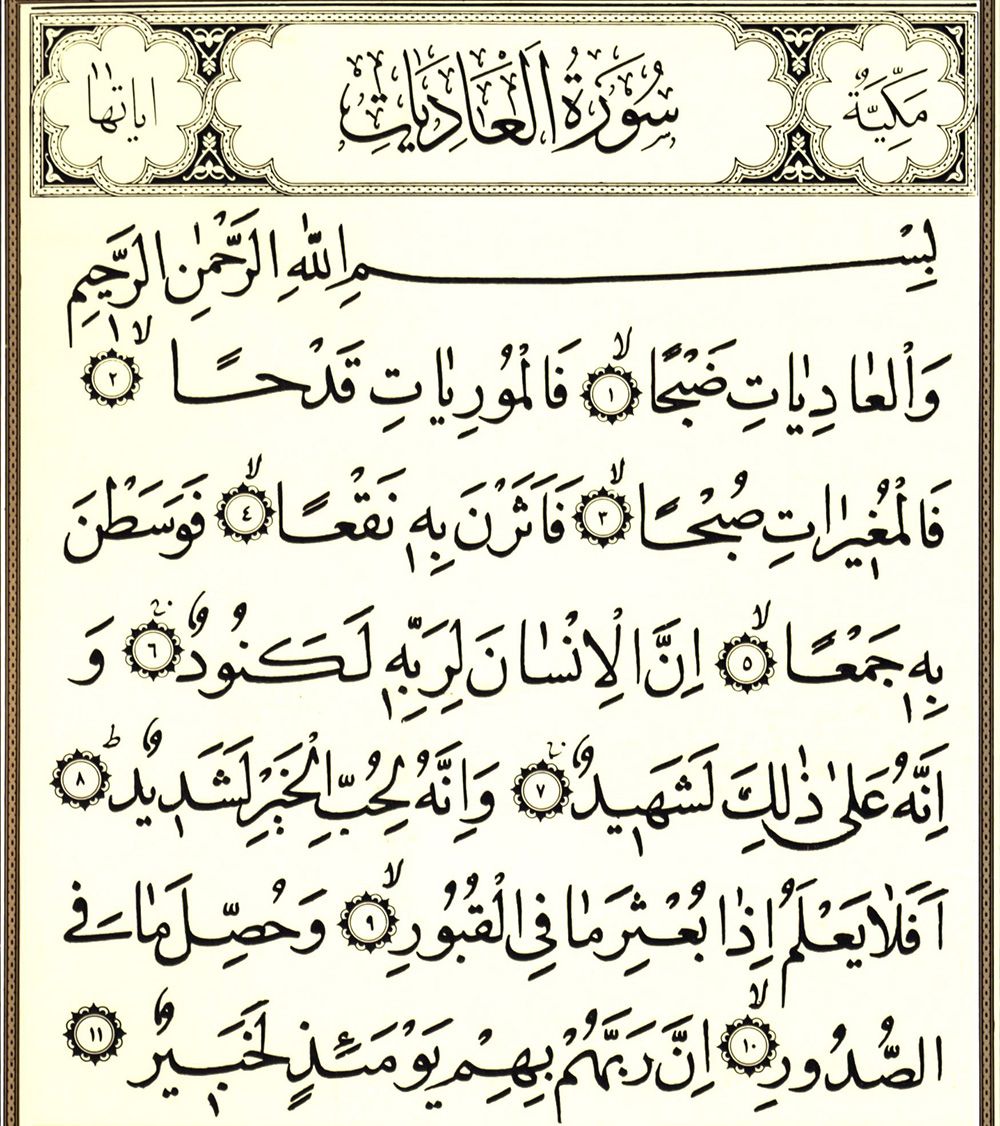 مَكِّيَّةٌ سُورَةُ الْعَادِيَاتِ اياتها ١١
بِسْمِ اللّٰهِ الرَّحْمٰنِ الرَّحِيمِ
وَالْعَادِيَاتِ ضَبْحًا ﴿١﴾ فَالْمُورِيَاتِ قَدْحًا ﴿٢﴾
فَالْمُغِيرَاتِ صُبْحًا ﴿٣﴾ فَاَثَرْنَ بِهِ نَقْعًا ﴿٤﴾ فَوَسَطْنَ
بِهِ جَمْعًا ﴿٥﴾ اِنَّ الْاِنْسَانَ لِرَبِّهِ لَكَنُودٌ ﴿٦﴾ وَ
اِنَّهُ عَلٰى ذٰلِكَ لَشَهِيدٌ ﴿٧﴾ وَاِنَّهُ لِحُبِّ الْخَيْرِ لَشَدِيدٌ ﴿٨﴾
اَفَلَا يَعْلَمُ اِذَا بُعْثِرَ مَا فِي الْقُبُورِ ﴿٩﴾ وَحُصِّلَ مَا فِي
الصُّدُورِ ﴿١٠﴾ اِنَّ رَبَّهُمْ بِهِمْ يَوْمَئِذٍ لَخَبِيرٌ ﴿١١﴾